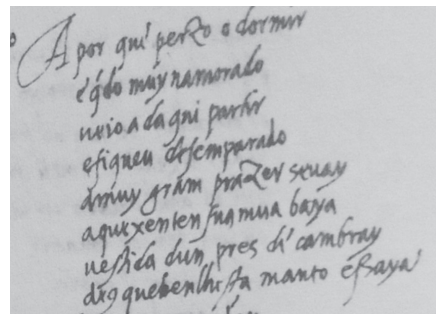 A por qui perzo o dormir
e q̃do muy namorado
veio a da qui partir
efiqueu desemparado
amuy gram prazer seuay
aquexenten sua mua baya
uestida dun pres di cambray
dẽs quebenlhista manto esaya